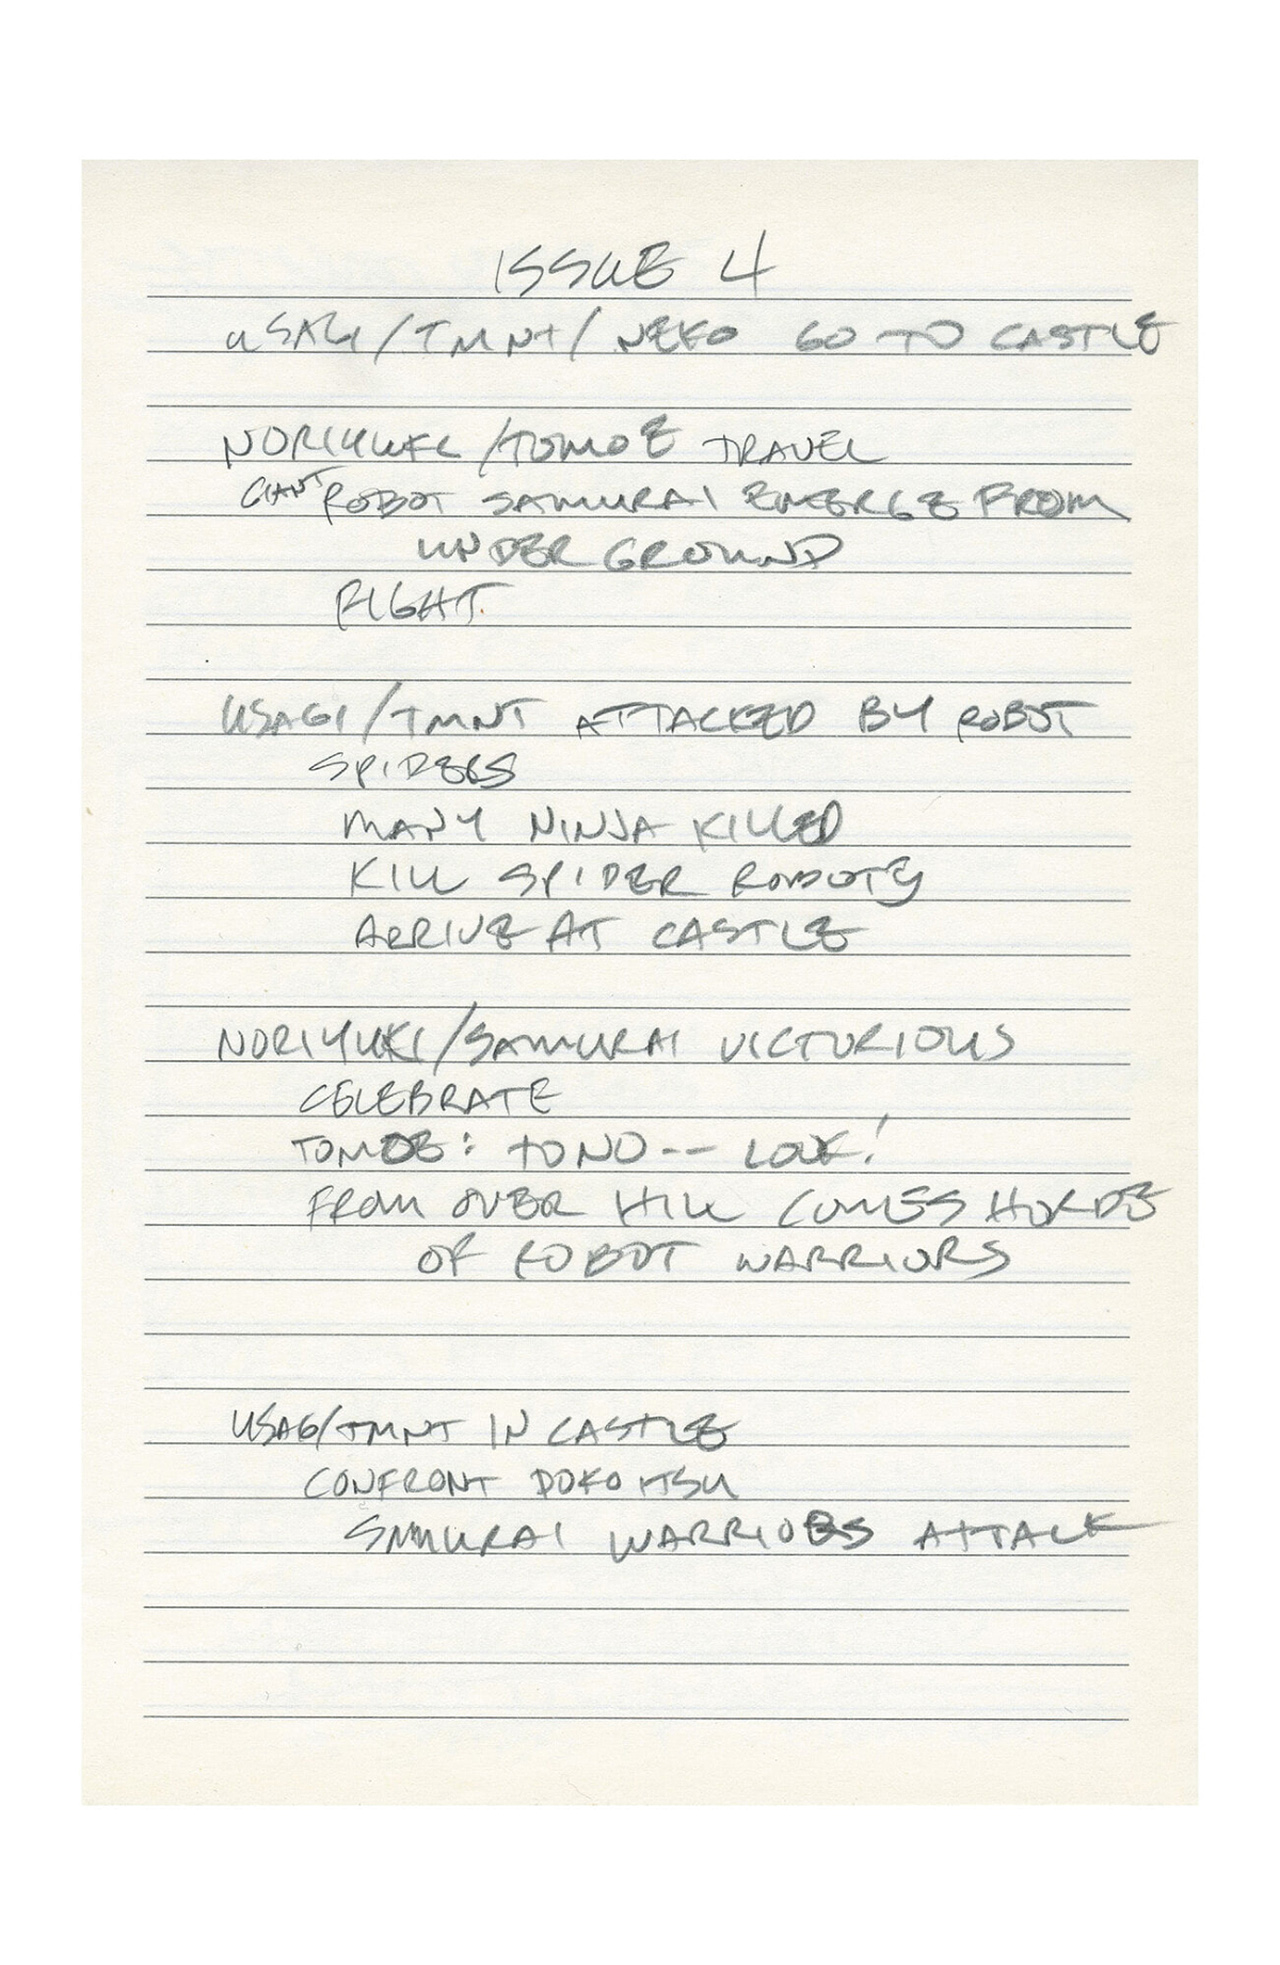 ISSUE 4
USAGI/TMNT/NEKO GO TO CASTLE
NORIYUKI/TOMOE TRAVEL
GIANT ROBOT SAMURAI EMERGE FROM
UNDER GROUND
FIGHT
USAGI/TMNT ATTACKED BY ROBOT
SPIDERS
MANY NINJA KILLED
KILL SPIDER ROBOTS
ARRIVE AT CASTLE
NORIYUKI/SAMURAI VICTORIOUS
CELEBRATE
TOMOE: TONO-- LOOK!
FROM OVER HILL COMES HORDE
OF ROBOT WARRIORS
USAGI/TMNT IN CASTLE
CONFRONT DOKO ITSU
SAMURAI WARRIORS ATTACK